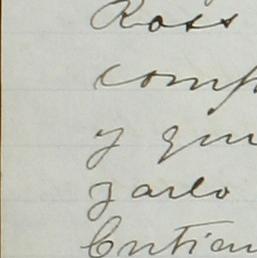 Ross
comp
y qui
garlo
Entien